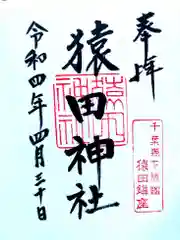 奉拝
猿田神社
令和四年四月三十日
千葉県下総國
猿田鎮座